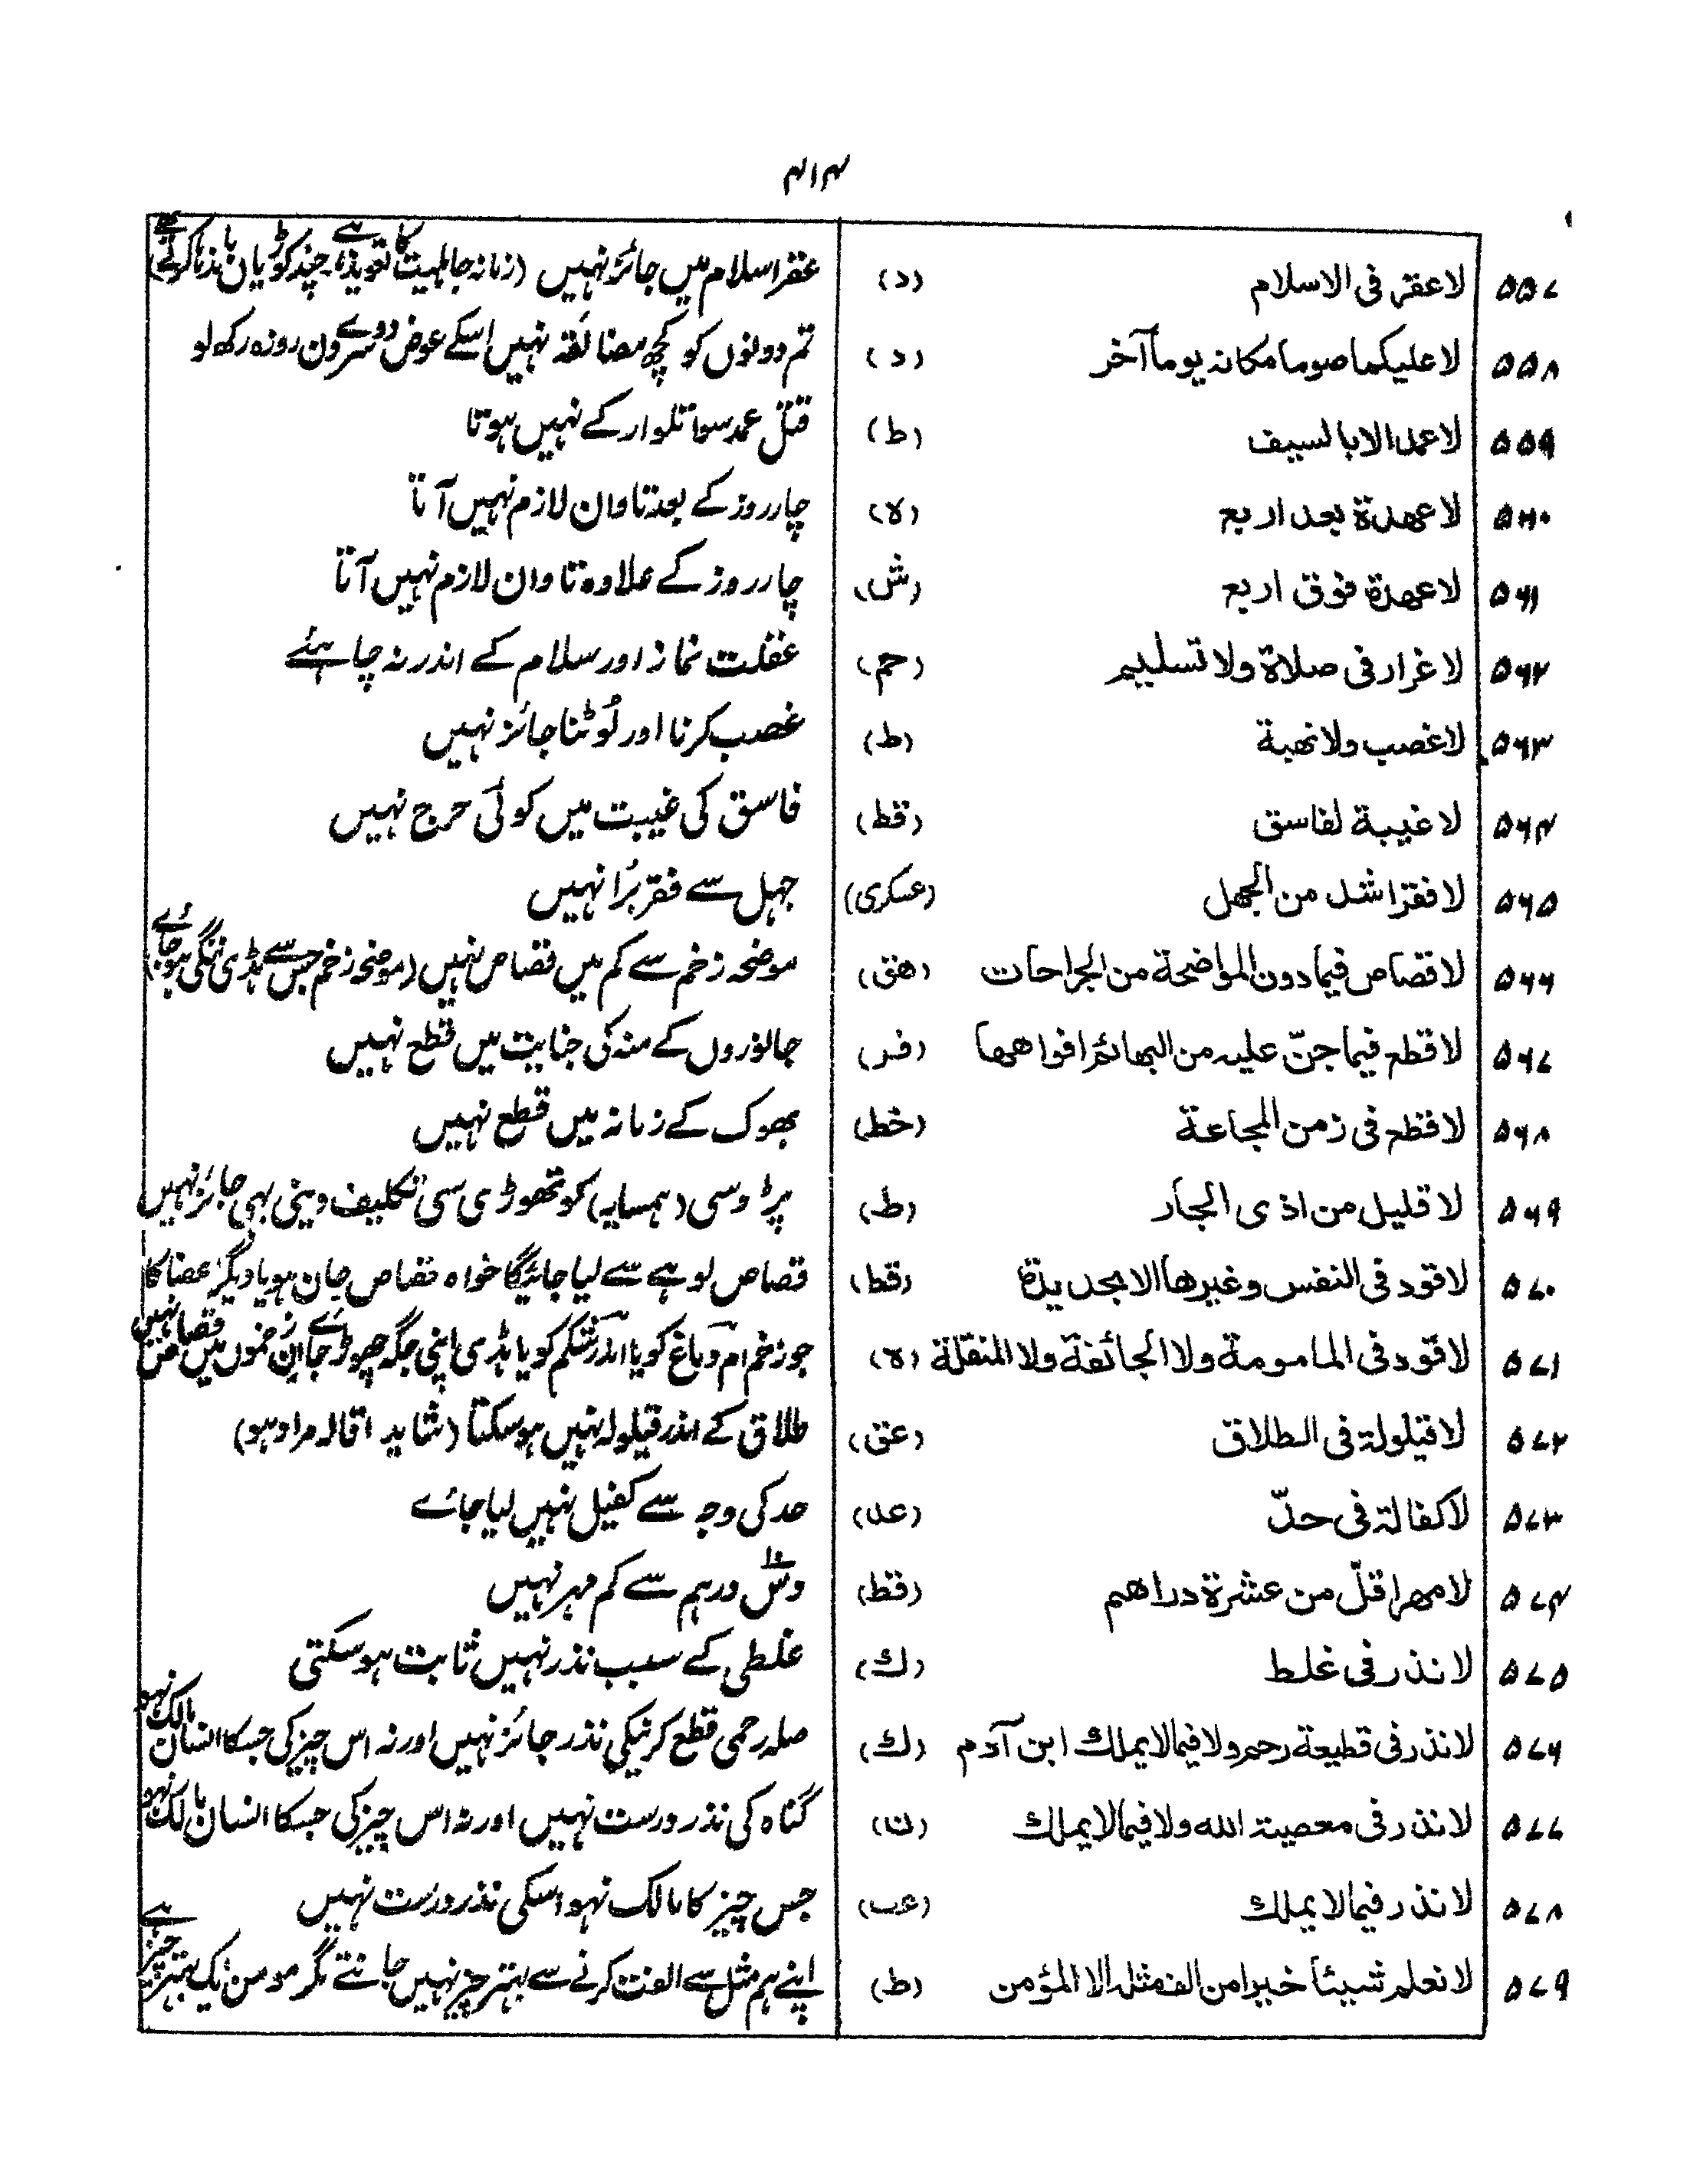 ۴۱۴
۵۵۷ لا عقر فی الاسلام (د) عقر اسلام میں جائز نہیں (زمانہ جاہلیت کا تعویذ ہے، چند کوڑیاں باندھا کرتے تھے)
۵۵۸ لا علیکما صوما مکانہ یوماً آخر (د) تم دونوں کو کچھ مضائقہ نہیں اسکے عوض دوسرے دن روزہ رکھ لو
۵۵۹ لا عمد الا بالسیف (ط) قتل عمد سوا تلوار کے نہیں ہوتا
۵۶۰ لا عھدۃ بعد اربع (ہ) چار روز کے بعد تاوان لازم نہیں آتا
۵۶۱ لا عھدۃ فوق اربع (ش) چار روز کے علاوہ تاوان لازم نہیں آتا
۵۶۲ لا غرار فی صلاۃ ولا تسلیم (حم) غفلت نماز اور سلام کے اندر نہ چاہئے
۵۶۳ لا غصب ولا نھبة (ط) غصب کرنا اور لُوٹنا جائز نہیں
۵۶۴ لا غیبة لفاسق (قط) فاسق کی غیبت میں کوئی حرج نہیں
۵۶۵ لا فقر اشد من الجھل (عسکری) جہل سے فقر بُرا نہیں
۵۶۶ لا قصاص فیما دون المواضحة من الجراحات (ھق) موضحہ زخم سے کم میں قصاص نہیں (موضحہ زخم جس سے ہڈی ننگی ہو جائے)
۵۶۷ لا قطع فیما جنّ علیہ من البھائم افواھھا (فر) جانوروں کے منہ کی جنایت میں قطع نہیں
۵۶۸ لا قطع فی زمن المجاعة (خط) بھوک کے زمانہ میں قطع نہیں
۵۶۹ لا قلیل من اذی الجار (ط) پڑوسی (ہمسایہ) کو تھوڑی سی تکلیف دینی بہی جائز نہیں
۵۷۰ لا قود فی النفس وغیرھا الا بحدیدۃ (قط) قصاص لوہے سے لیا جائیگا خواہ قصاص جان ہو یا دیگر عضا کا
۵۷۱ لا قود فی المامومة ولا الجائفة ولا المنقلة (ہ) جو زخم ام دماغ کو یا اندر شکم کو یا ہڈی اپنی جگہ چھوڑ جائے ان زخموں میں قصاص نہیں
۵۷۲ لا قیلولة فی الطلاق (عق) طلاق کے اندر قیلولہ نہیں ہو سکتا (شاید اقالہ مراد ہو)
۵۷۳ لا کفالة فی حدّ (عد) حد کی وجہ سے کفیل نہیں لیا جائے
۵۷۴ لا مھر اقلّ من عشرۃ دراھم (قط) دس ۱۰ درہم سے کم مہر نہیں
۵۷۵ لا نذر فی غلط (ك) غلطی کے سبب نذر نہیں ثابت ہو سکتی
۵۷۶ لا نذر فی قطیعة رحم ولا فیما لا یملك ابن آدم (ك) صلہ رحمی قطع کرنیکی نذر جائز نہیں اور نہ اس چیز کی جسکا انسان مالک نہو
۵۷۷ لا نذر فی معصیة اللہ ولا فیما لا یملك (ن) گناہ کی نذر درست نہیں اور نہ اس چیز کی جسکا انسان مالک نہو
۵۷۸ لا نذر فیما لا یملك (عب) جس چیز کا مالک نہو اسکی نذر درست نہیں
۵۷۹ لا نعلم شیئاً خیرا من الف مثلہ الا المؤمن (ط) اپنے ہم مثل سے الفت کرنے سے بہتر چیز نہیں جانتے مگر مومن نیک بہتر چیز ہے